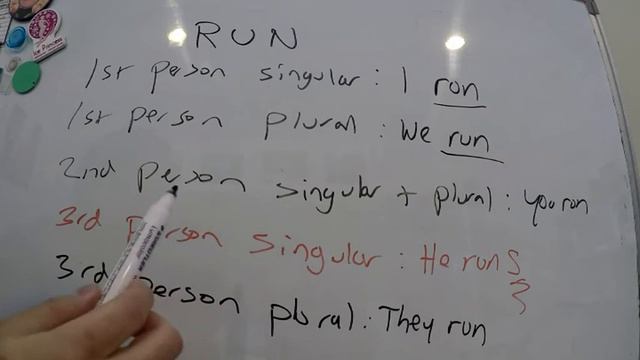 RUN
1st person singular : I run
1st person plural : We run
2nd person singular + plural : you run
3rd Person singular : He runs
3rd person plural : They run